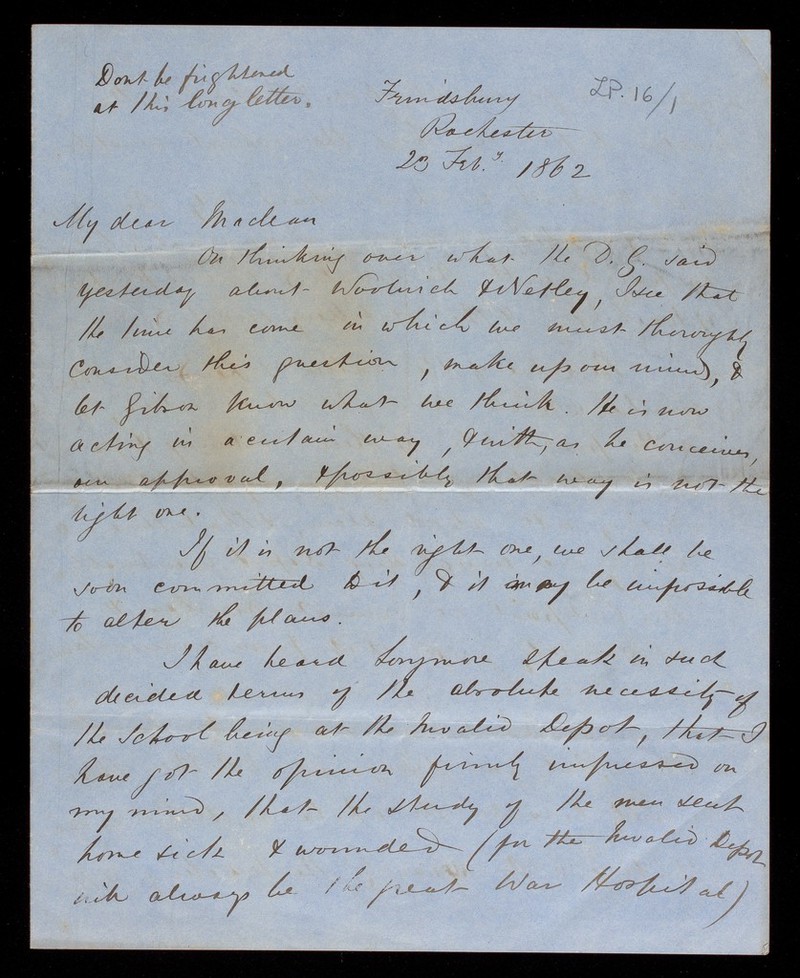 Dont be frightened
at this long letter.
LP. 16/1
Frindsbury
Rochester
23 Feb.y 1862
My dear Maclean
On thinking over what the D. G. said
yesterday about Woolwich & Netley, I see that
the time has come in which we must thoroughly
consider this question, make up our minds, &
let Gibson know what we think. He is now
acting in a certain way, & with, as he conceives,
our approval, & possibly that way is not the
right one.
If it is not the right one, we shall be
soon committed to it, & it may be impossible
to alter the plans.
I have heard Longmore speak in such
decided terms of the absolute necessity of
the School being at the Invalid Depot, that I
have got the opinion firmly impressed on
my mind, that the study of the men sent
home sick & wounded (for the Invalid Depot
will always be the great War Hospital)